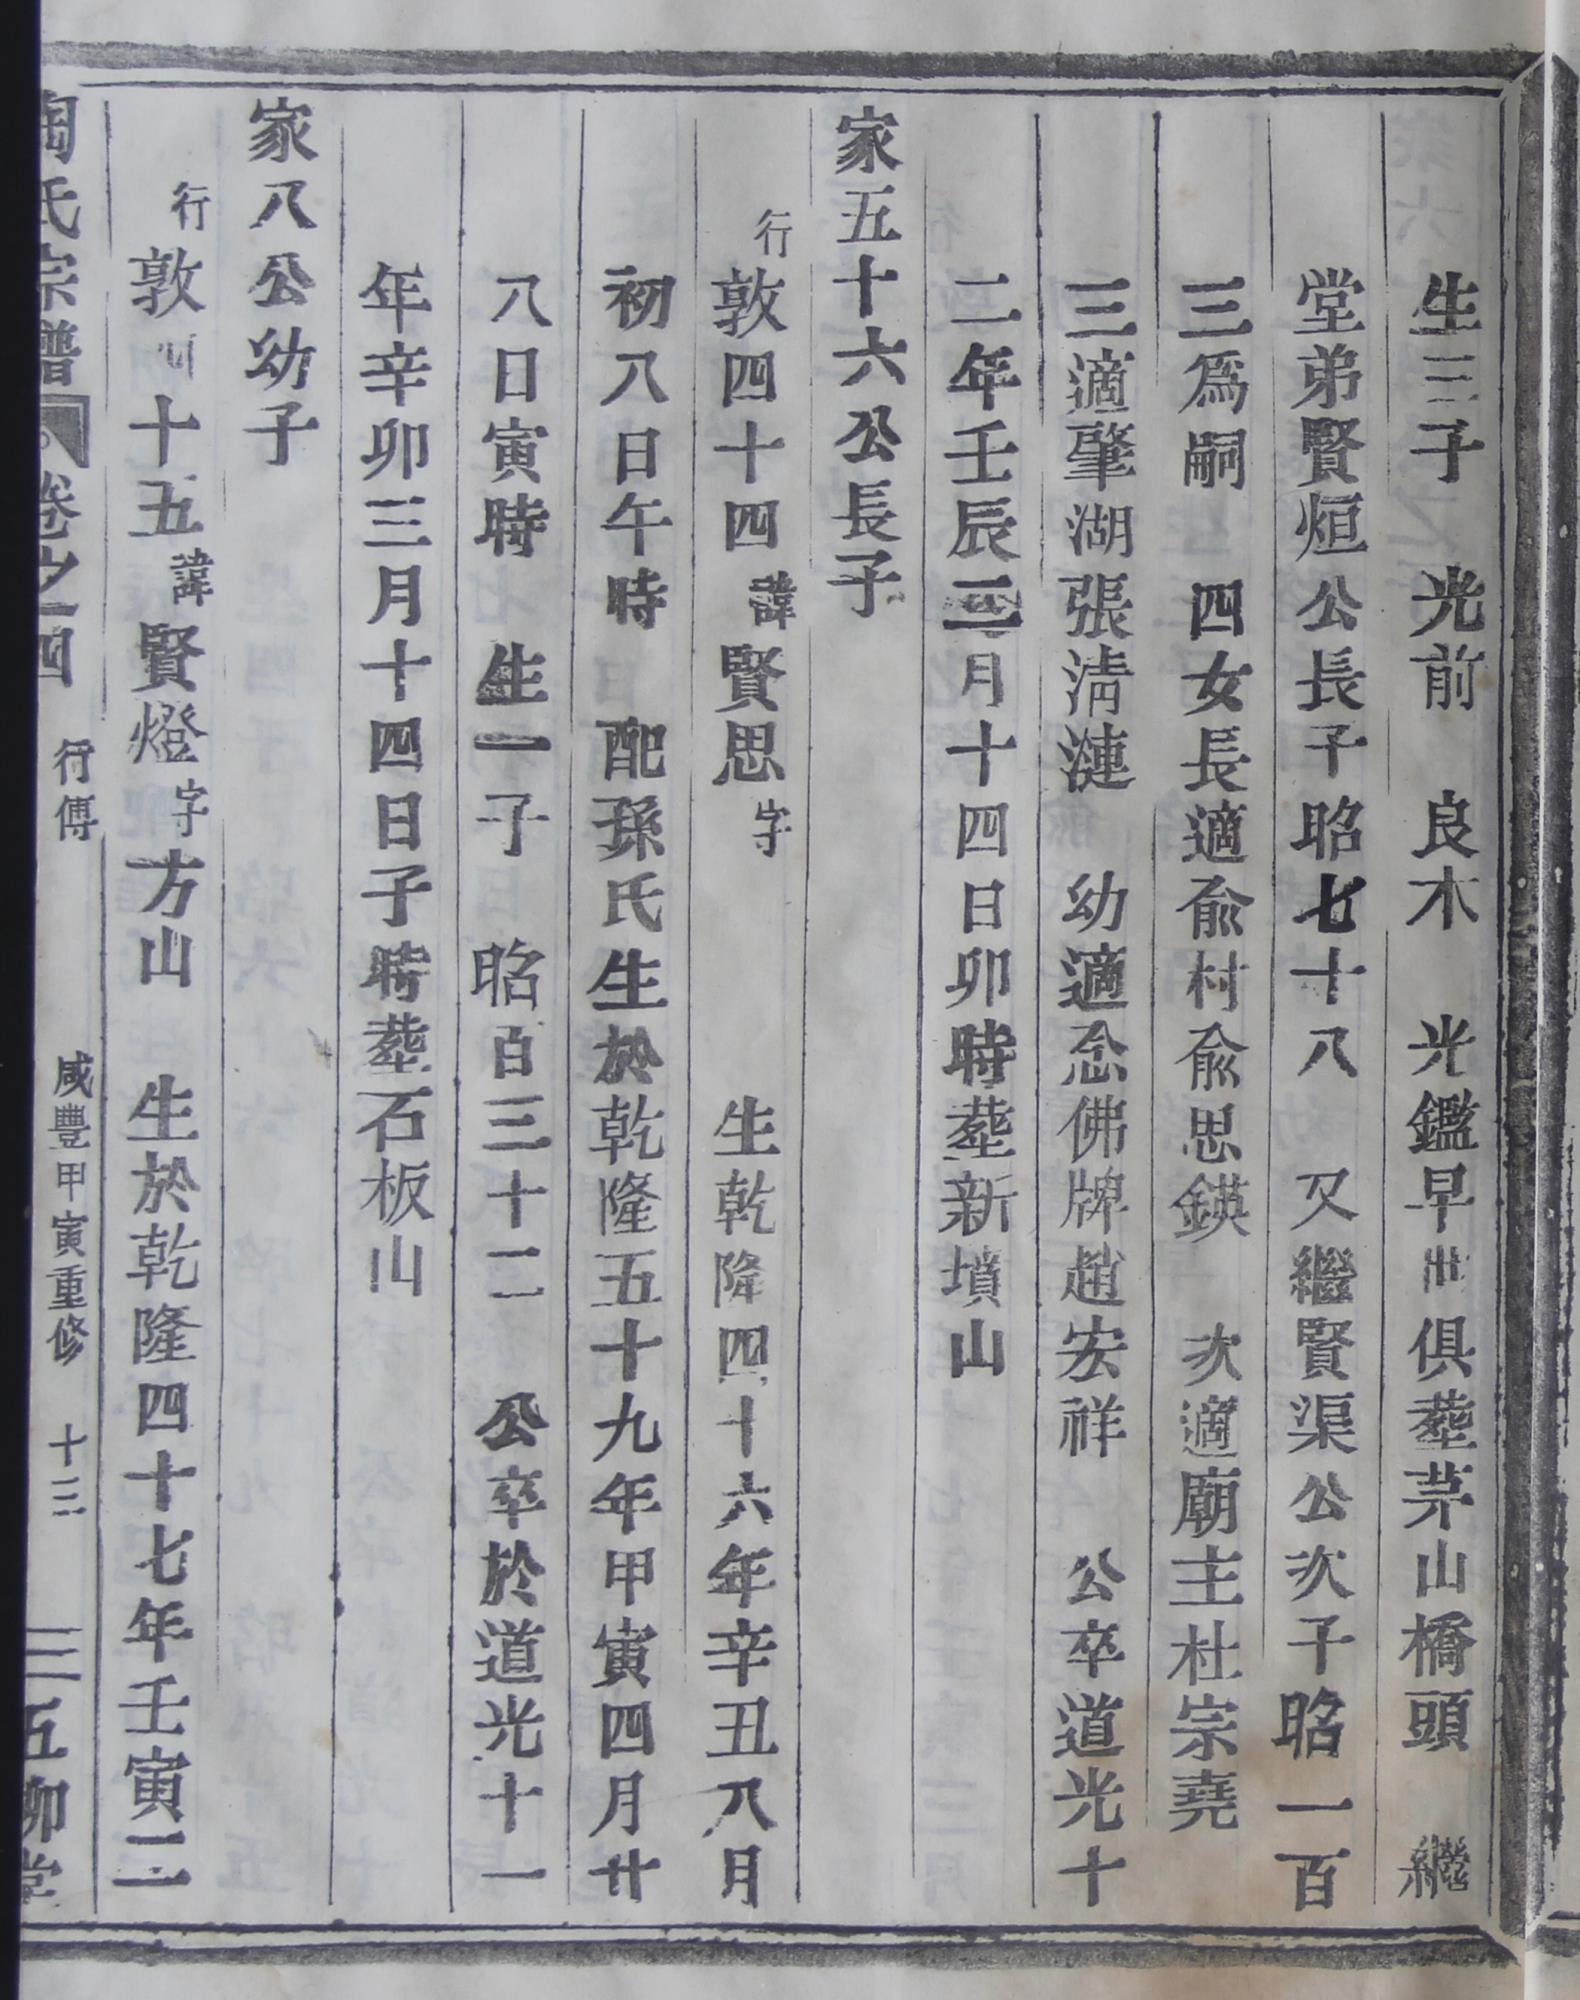 生三子　光前　良木　光鑑早世俱塟茅山橋頭　繼
堂弟賢烜公長子昭七十八　又繼賢渠公次子昭一百
三為嗣　四女長適俞村俞思鍈　次適廟主杜宗堯
三適肇湖張淸漣　幼適念佛牌趙宏祥　公卒道光十
二年壬辰三月十四日卯時塟新墳山
家五十六公長子
行敦四十四諱賢思字　　　生乾隆四十六年辛丑八月
初八日午時　配孫氏生於乾隆五十九年甲寅四月廿
八日寅時　生一子　昭百三十二　公卒於道光十一
年辛卯三月十四日子時塟石板山
家八公幼子
行敦十五諱賢燈字方山　生於乾隆四十七年壬寅二
陶氏宗譜　卷之四　行傳　咸豐甲寅重修　十三　五柳堂